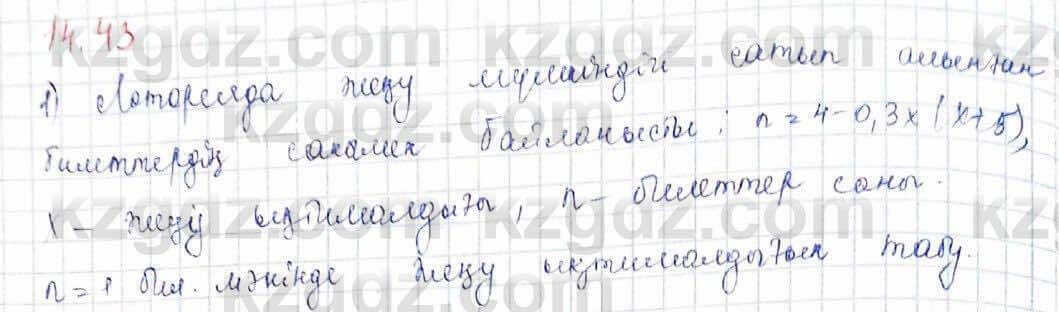 14.43
1) Лотореяда жеңу мүмкіндігі сатып алынған
билеттердің санамен байланысты: n = 4 - 0,3x(x+5),
x - жеңу ықтималдығы, n - билеттер саны.
n = 1 бол. мәнінде жеңу ықтималдығын табу.
kzgdz.com